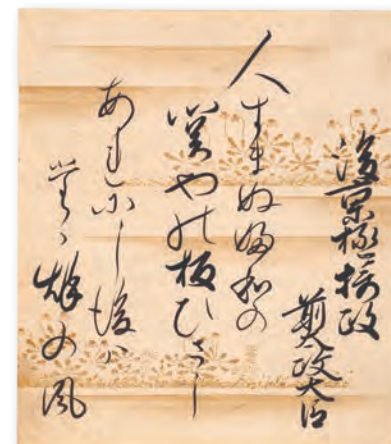 後京極摂政
前太政大臣
人すまぬふ和の
関やの板ひさし
あれにし後ハ
たゝ秋の風